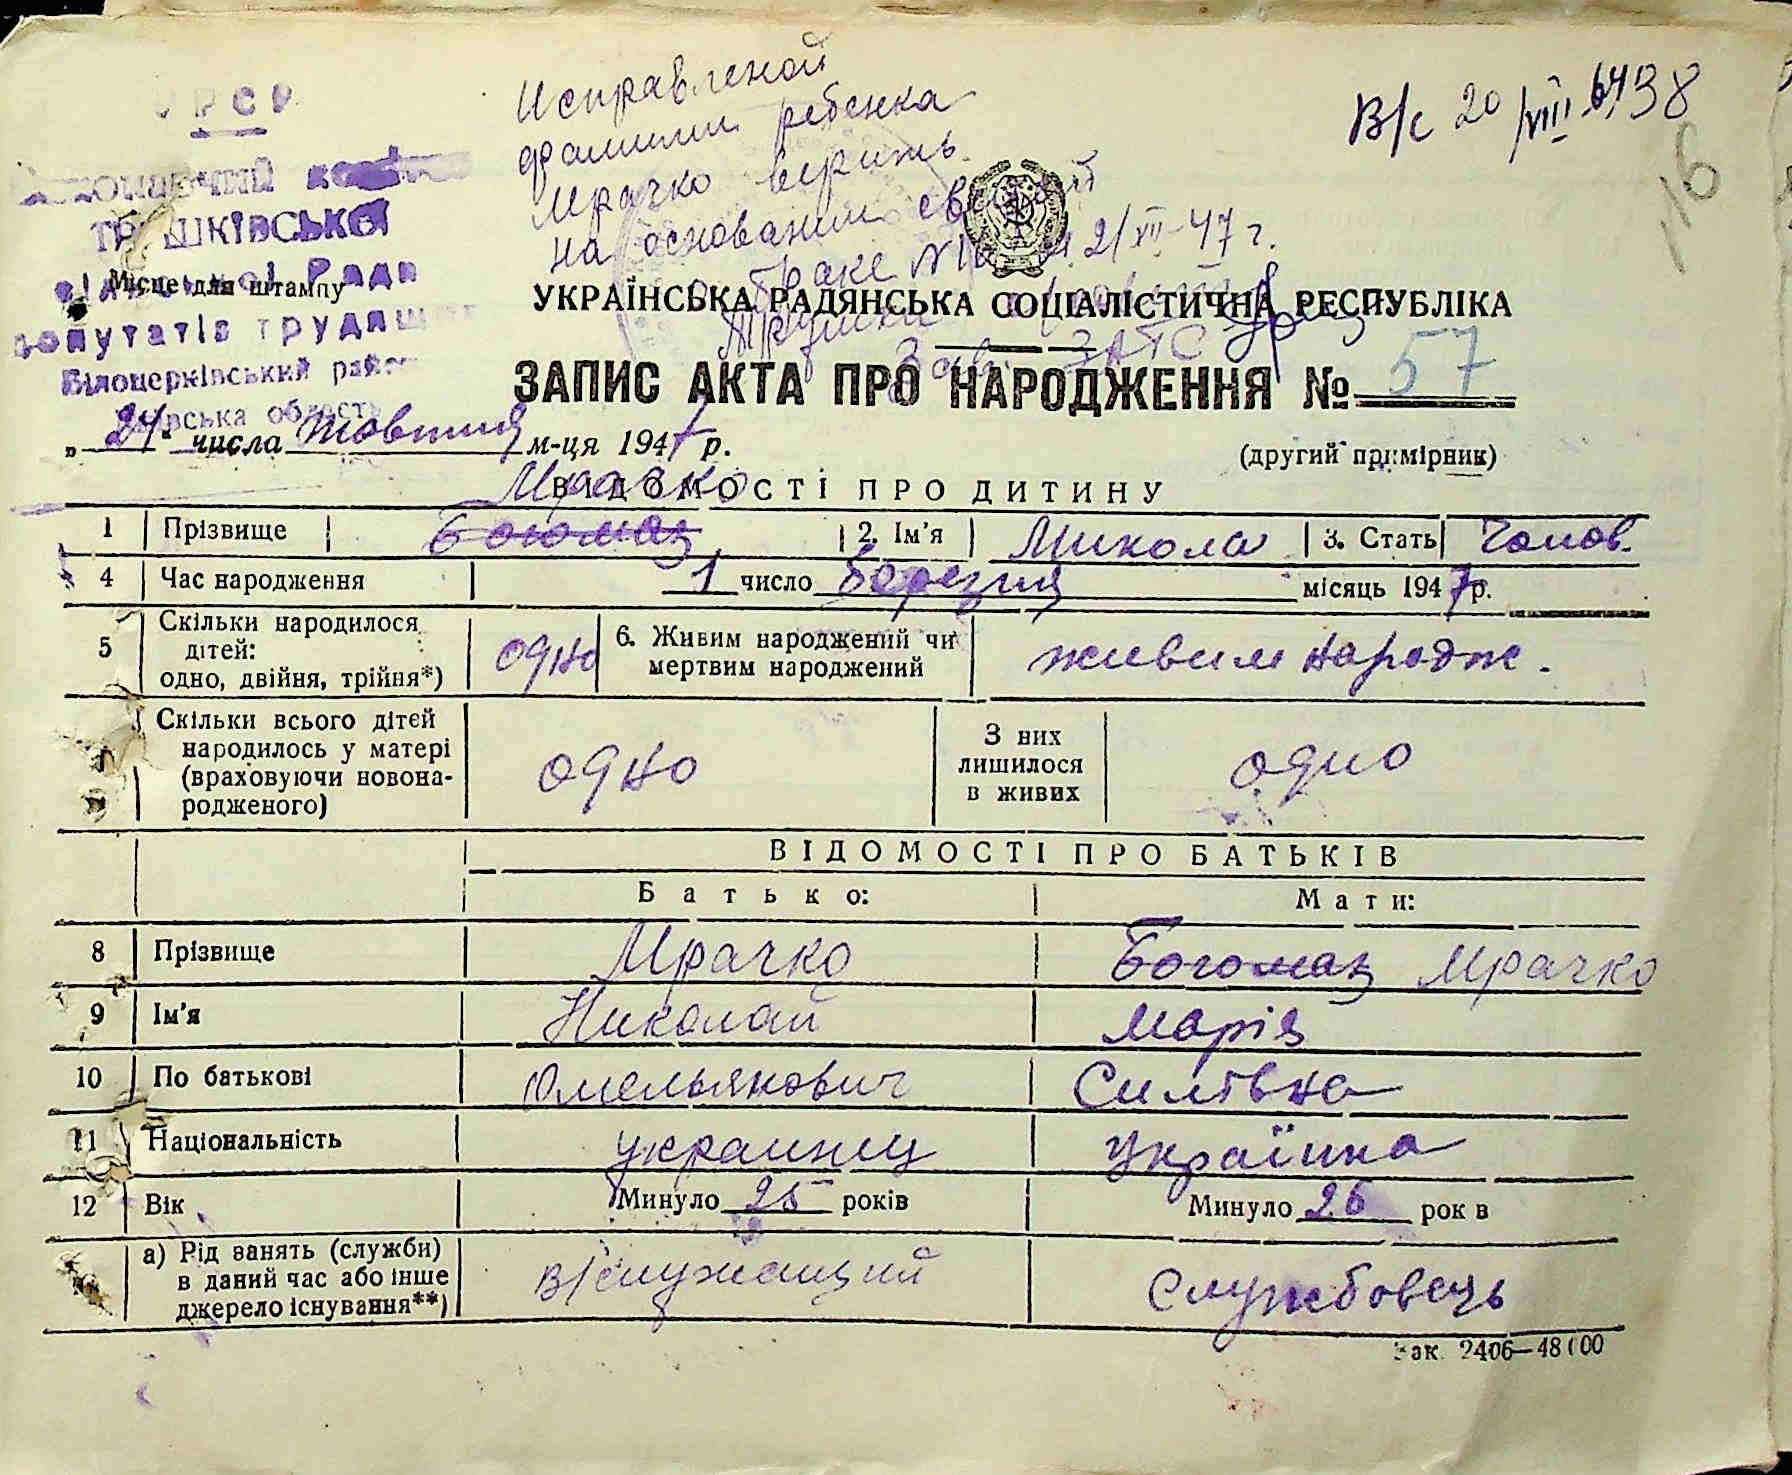 Исправленой
фамилии ребенка
Мрачко верить
на основании
браке № 21/XII-47 г.
ЗАГС
В/с 20/VIII-64
38
116
УРСР
ВИКОНАВЧИЙ
ТРУШКІВСЬКОЇ
Ради
депутатів трудящих
Білоцерківський район
Київська область
Місце для штампу
УКРАЇНСЬКА РАДЯНСЬКА СОЦІАЛІСТИЧНА РЕСПУБЛІКА
ЗАПИС АКТА ПРО НАРОДЖЕННЯ № 57
„24“ числа Жовтня м-ця 1947 р.
(другий примірник)
Мрачко
ВІДОМОСТІ ПРО ДИТИНУ
1 Прізвище Богомаз 2. Ім'я Микола 3. Стать Чолов.
4 Час народження 1 число березня місяць 1947 р.
5 Скільки народилося дітей: одно, двійня, трійня*) одно 6. Живим народжений чи мертвим народжений живим народж.
7 Скільки всього дітей народилось у матері (враховуючи новонародженого) одно З них лишилося в живих одно
ВІДОМОСТІ ПРО БАТЬКІВ
Батько: Мати:
8 Прізвище Мрачко Богомаз Мрачко
9 Ім'я Николай Марія
10 По батькові Омельянович Силівна
11 Національність украинец Українка
12 Вік Минуло 25 років Минуло 26 років
а) Рід занять (служби) в даний час або інше джерело існування**) в/служащий Службовець
Зак. 2406—48100